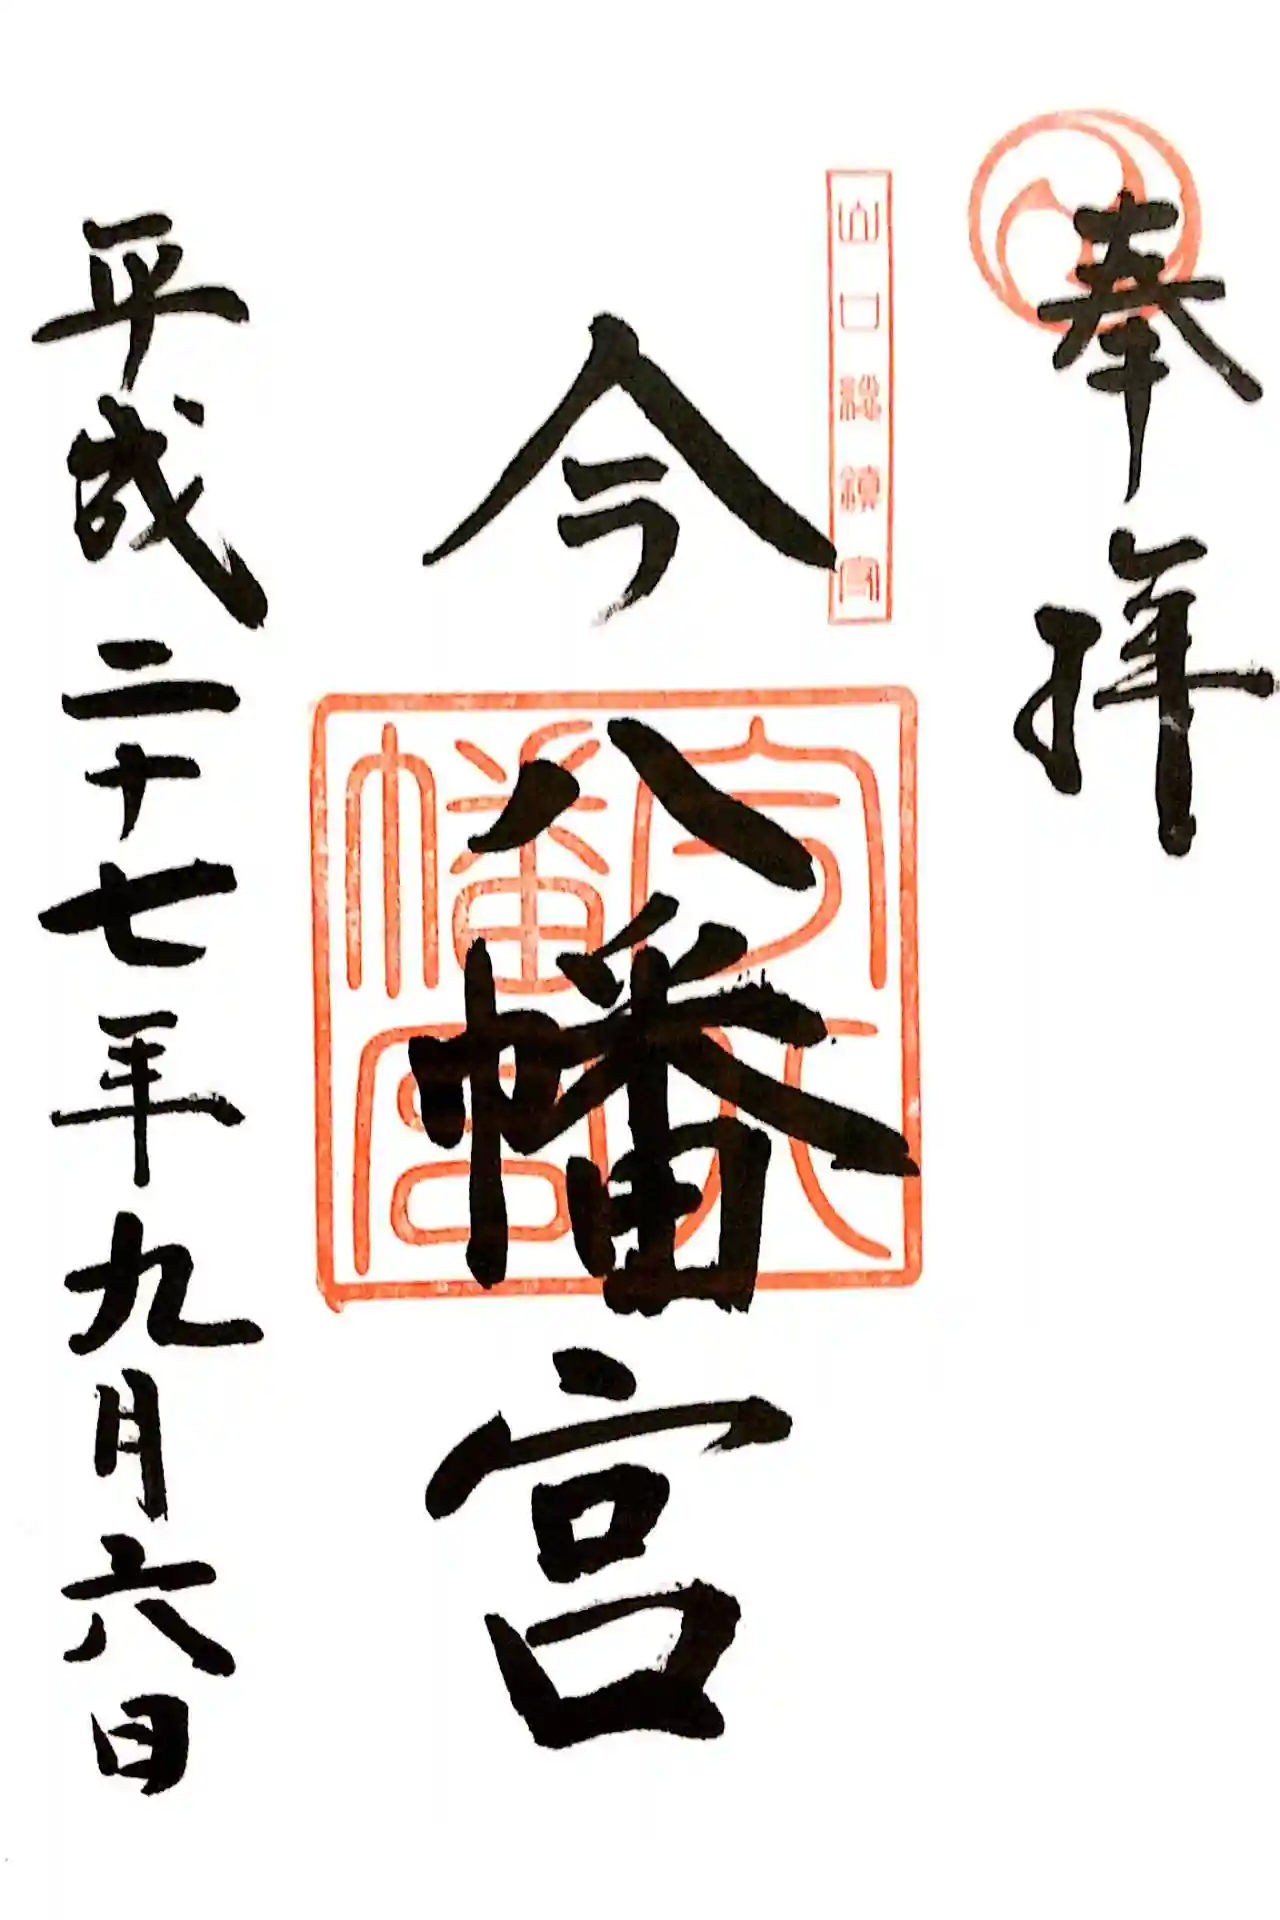 奉拝
山口総鎮守
今八幡宮
今八幡宮
平成二十七年九月六日